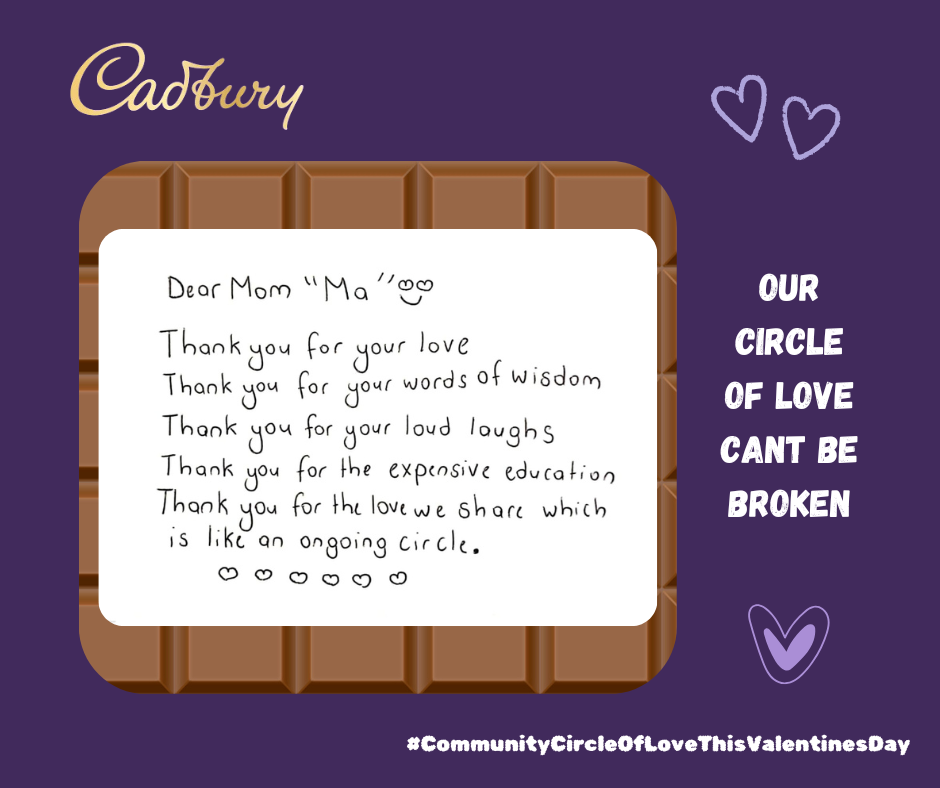 Cadbury
Dear Mom "Ma"
Thank you for your love
Thank you for your words of wisdom
Thank you for your loud laughs
Thank you for the expensive education
Thank you for the love we share which
is like an ongoing circle.
OUR
CIRCLE
OF LOVE
CANT BE
BROKEN
#CommunityCircleOfLoveThisValentinesDay